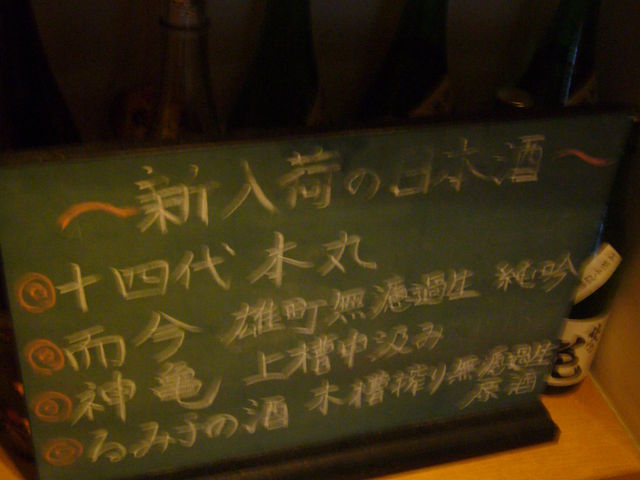 ～新入荷の日本酒～
◎十四代 本丸
◎而今 雄町無濾過生 純吟
◎神亀 上槽中汲み
◎るみ子の酒 木槽搾り無濾過生
原酒